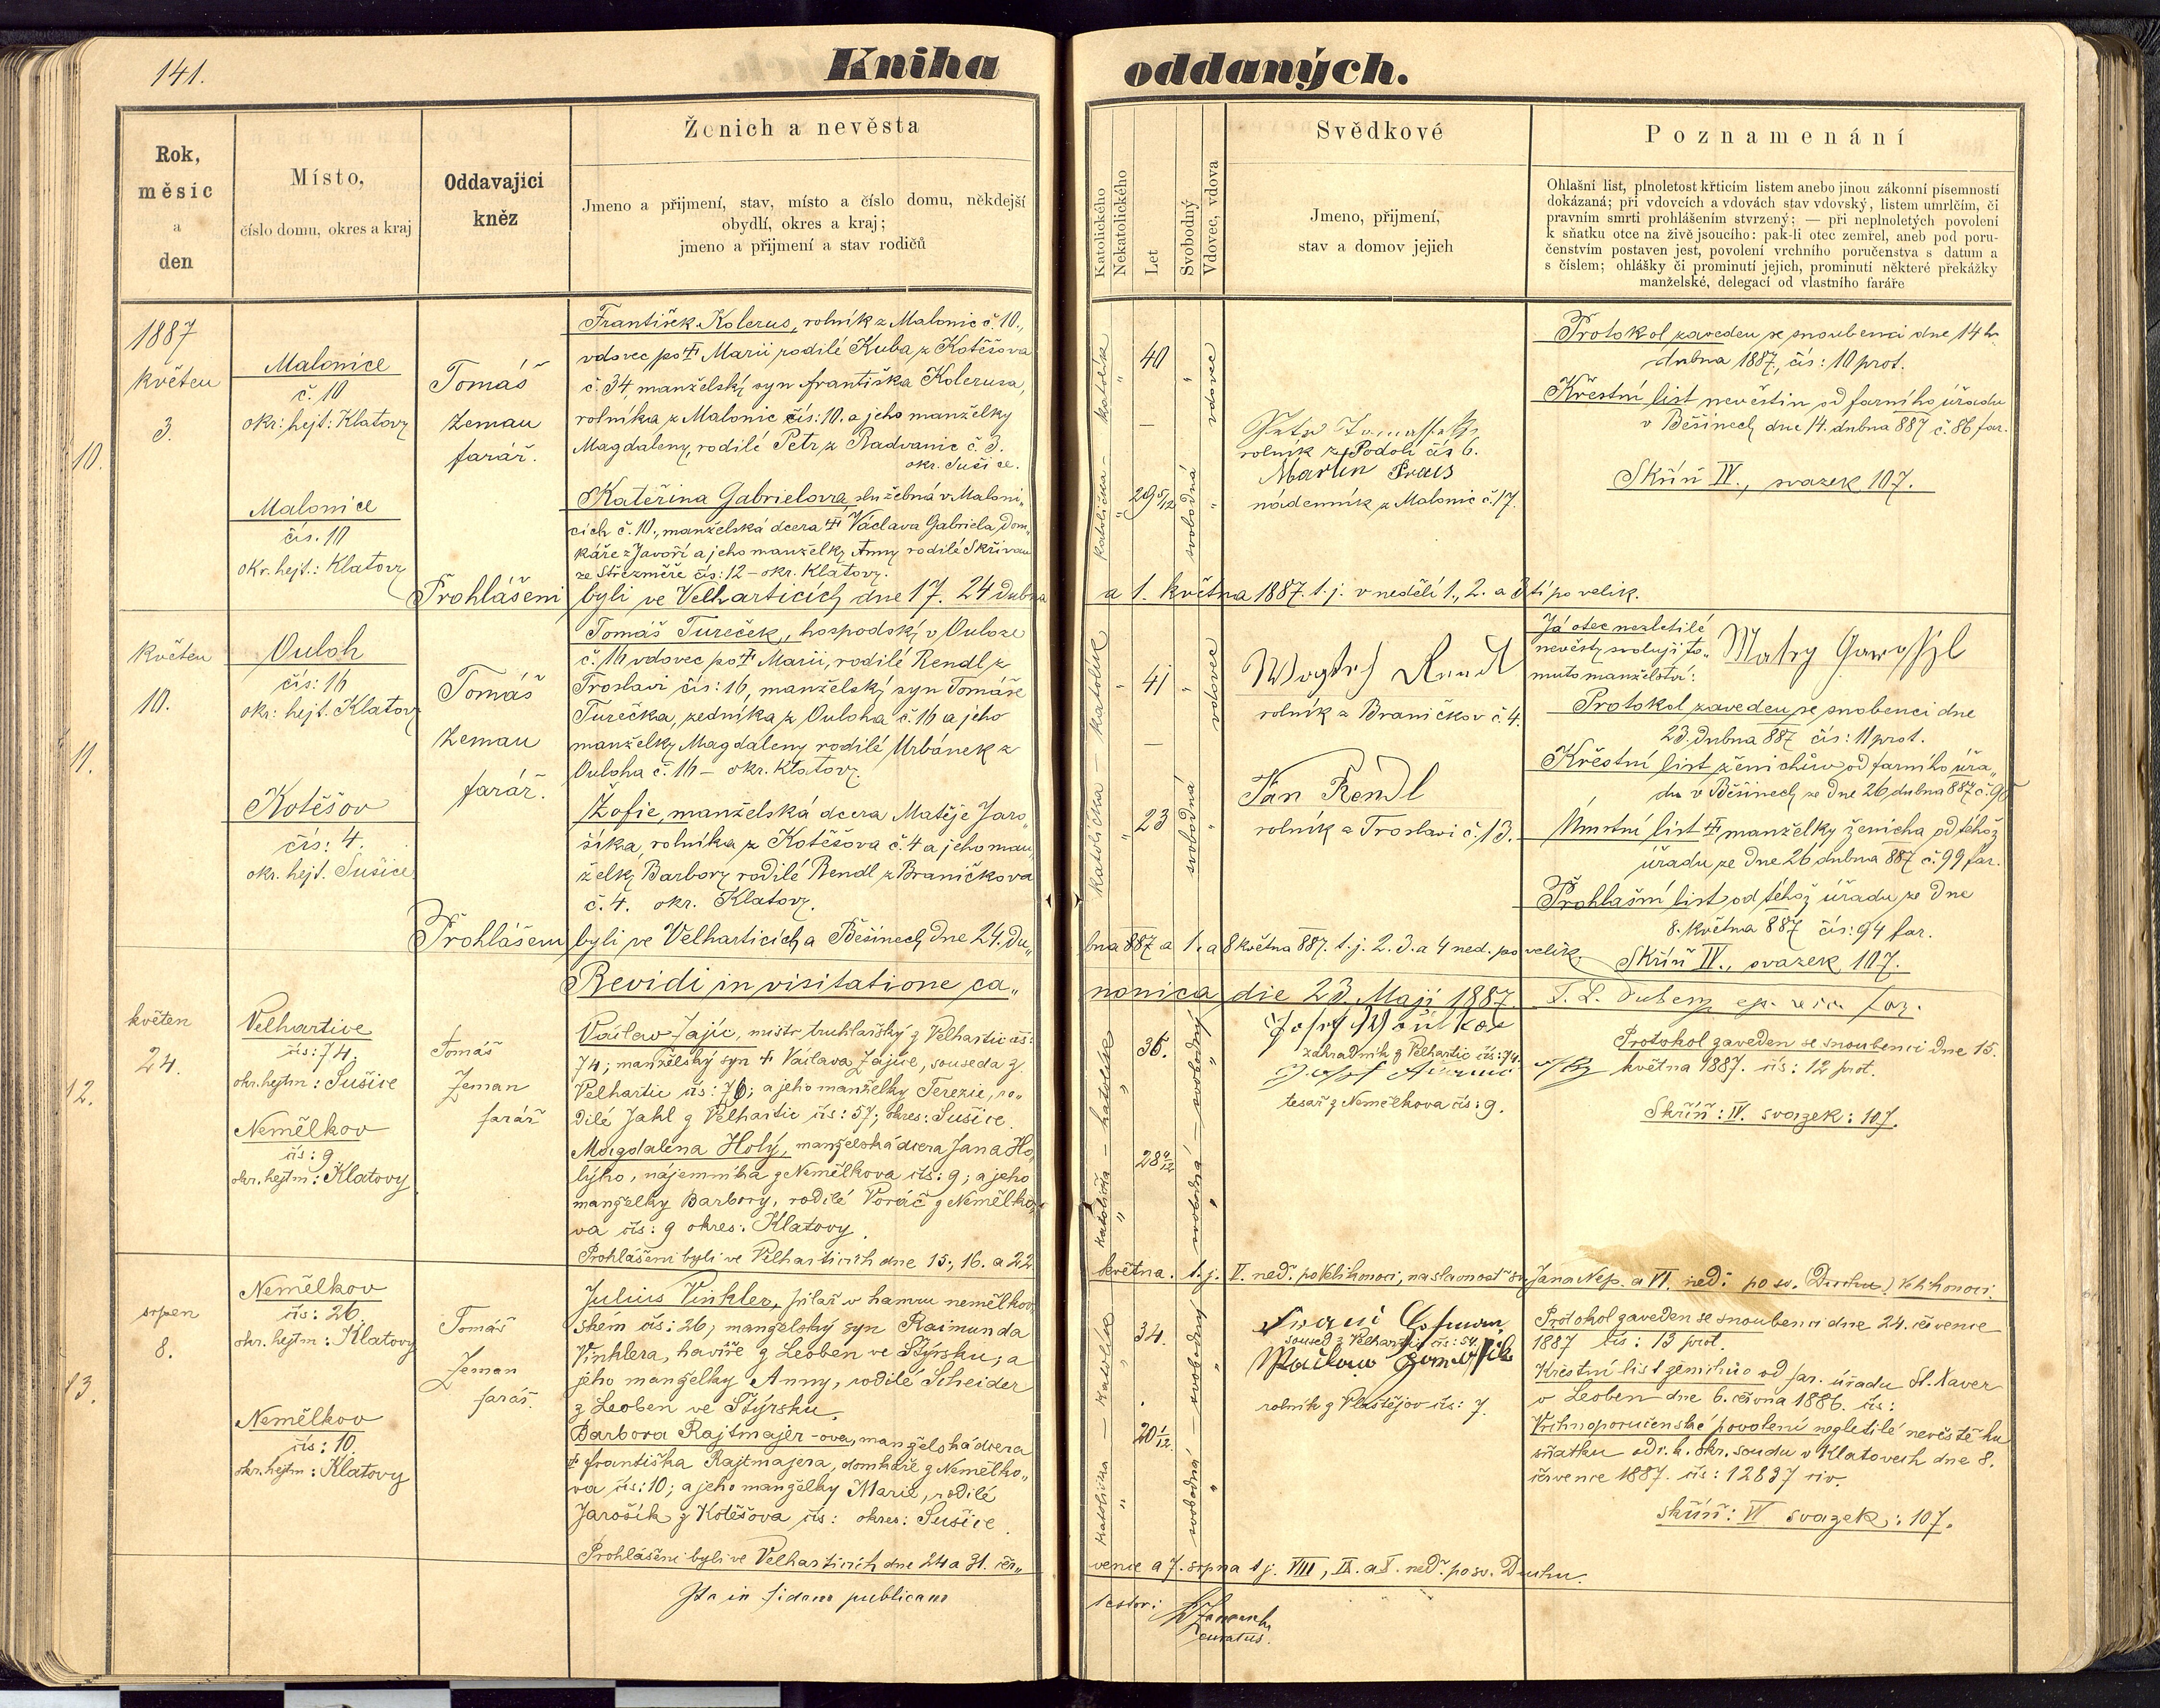 141.
Kniha oddaných.
Rok,
měsíc
a
den
Místo,
číslo domu, okres a kraj
Oddavající
kněz
Ženich a nevěsta
Jmeno a přijmení, stav, místo a číslo domu, někdejší
obydlí, okres a kraj;
jmeno a přijmení a stav rodičů
Katolického
Nekatolického
Let
Svobodný
Vdovec, vdova
Svědkové
Jmeno, přijmení,
stav a domov jejich
Poznamenání
Ohlašní list, plnoletost křticím listem anebo jinou zákonní písemností
dokázaná; při vdovcích a vdovách stav vdovský, listem umrlčím, či
pravním smrti prohlášením stvrzený; — při neplnoletých povolení
k sňatku otce na živě jsoucího: pak-li otec zemřel, aneb pod poru-
čenstvím postaven jest, povolení vrchního poručenstva s datum a
s číslem; ohlášky či prominutí jejich, prominutí některé překážky
manželské, delegací od vlastního faráře
10.
1887
květen
3.
Malonice
č. 10
okr: hejt: Klatovy
Malonice
čís. 10
okr. hejt.: Klatovy
Tomáš
Zeman
farář.
František Kolerus, rolník z Malonic č. 10.,
vdovec po † Marii rodilé Kuba z Kotěšova
č. 34, manželský syn Františka Kolerusa,
rolníka z Malonic čís: 10. a jeho manželky
Magdaleny, rodilé Petr z Radvanic č. 3.
okr. Sušice.
Kateřina Gabrielova, služebná v Maloni-
cích č. 10., manželská dcera † Václava Gabriela, dom-
káře z Javoří a jeho manželky Anny rodilé Skřivan
ze Střezměře čís: 12 - okr. Klatovy.
katolík
"
40
"
vdovec
katolička
"
29 5/12
svobodná
"
rolník z Podolí čís 6.
Martin
nádenník z Malonic č. 17.
Protokol zaveden se snoubenci dne 14ho
dubna 1887, čís: 10 prot.
Křestní list nevěstin od farního úřadu
v Běšinech dne 14. dubna 887 č. 86 far.
Skříň IV., svazek 107.
Prohlášeni byli ve Velharticích dne 17. 24 dubna a 1. května 1887. t. j. v neděli 1., 2. a 3tí po velik.
11.
květen
10.
Ouloh
čís: 16
okr: hejt. Klatovy
Kotěšov
čís: 4.
okr. hejt. Sušice.
Tomáš
Zeman
farář.
Tomáš Tureček, hospodský v Ouloze
č. 16 vdovec po † Marii, rodilé Rendl z
Troslavi čís: 16, manželský syn Tomáše
Turečka, zedníka z Ouloha č. 16 a jeho
manželky Magdaleny rodilé Urbánek z
Ouloha č. 16 - okr. Klatovy.
Žofie, manželská dcera Matěje Jaro-
šíka, rolníka z Kotěšova č. 4 a jeho man-
želky Barbory rodilé Rendl z Braničkova
č. 4. okr. Klatovy.
katolík
"
41
"
vdovec
katolička
"
23
svobodná
"
rolník z Braničkov č. 4.
Jan Rendl
rolník z Troslavi č. 13.
Já otec nezletilé
nevěsty svoluji to-
muto manželství:
Protokol zaveden se snoubenci dne
23. dubna 887 čís: 11 prot.
Křestní list ženichův od farního úřa-
du v Běšinech ze dne 26 dubna 887 č. 98
Úmrtní list † manželky ženicha od téhož
úřadu ze dne 26 dubna 887 č. 99 far.
Prohlašní list od téhož úřadu ze dne
8. května 887 čís: 94 far.
Skříň IV., svazek 107.
Prohlášeni byli ve Velharticích a Běšinech dne 24. du- bna 887 a 1. a 8 května 887. t. j. 2. 3. a 4 ned. po velik.
Revidi in visitatione ca- nonica die 23. Maji 1887.
12.
květen
24.
Velhartice
čís: 74.
okr. hejtm: Sušice
Nemělkov
čís: 9
okr. hejtm: Klatovy
Tomáš
Zeman
farář
Václav Zajíc, mistr truhlařský z Velhartic čís:
74; manželský syn † Václava Zajíce, souseda z
Velhartic čís: 76; a jeho manželky Terezie, ro-
dilé Jahl z Velhartic čís: 57; okres: Sušice.
Magdalena Holý, manželská dcera Jana Ho-
lýho, nájemníka z Nemělkova čís: 9; a jeho
manželky Barbory, rodilé Voráč z Nemělko-
va čís: 9 okres: Klatovy.
katolík
"
36.
svobodný
"
katolička
"
28 4/12
svobodná
"
Josef
zahradník z Velhartic čís: 74.
Josef
tesař z Nemělkova čís: 9.
Protokol zaveden se snoubenci dne 15.
května 1887. čís: 12 prot.
Skříň: IV. svazek: 107.
Prohlášeni byli ve Velharticích dne 15., 16. a 22. května. t. j. V. neď. po Velikonoci, na slavnosť sv. Jana Nep. a VI. neď. po sv. Duchu) Velikonoci.
13.
srpen
8.
Nemělkov
čís: 26.
okr. hejtm: Klatovy
Nemělkov
čís: 10.
okr. hejtm: Klatovy
Tomáš
Zeman
farář.
Julius Vinkler, pilař v hamru nemělkov-
ském čís: 26; manželský syn Raimunda
Vinklera, havíře z Leoben ve Štýrsku; a
jeho manželky Anny, rodilé Scheider
z Leoben ve Štýrsku.
Barbora Rajtmajer-ova, manželská dcera
† Františka Rajtmajera, domkáře z Nemělko-
va čís: 10; a jeho manželky Marie, rodilé
Jarošík z Kotěšova čís: okres: Sušice.
katolík
"
34.
svobodný
"
katolička
"
20 1/12.
svobodná
"
soused z Velhartic čís: 54.
rolník z Plaštějov čís: 7.
Protokol zaveden se snoubenci dne 24. července
1887 čís: 13 prot.
Křestní list ženichův od far. úřadu St. Xaver
v Leoben dne 6. června 1886. čís:
Vrchnoporučenské povolení nezletilé nevěstě ku
sňatku od c. k. okr. soudu v Klatovech dne 8.
července 1887. čís: 12837 civ.
skříň: VI svazek: 107.
Prohlášeni byli ve Velharticích dne 24 a 31. čer- vence a 7. srpna t. j. VIII, IX. a X. neď. po sv. Duchu.
Ita in fidem publicam
testor:
curatus.